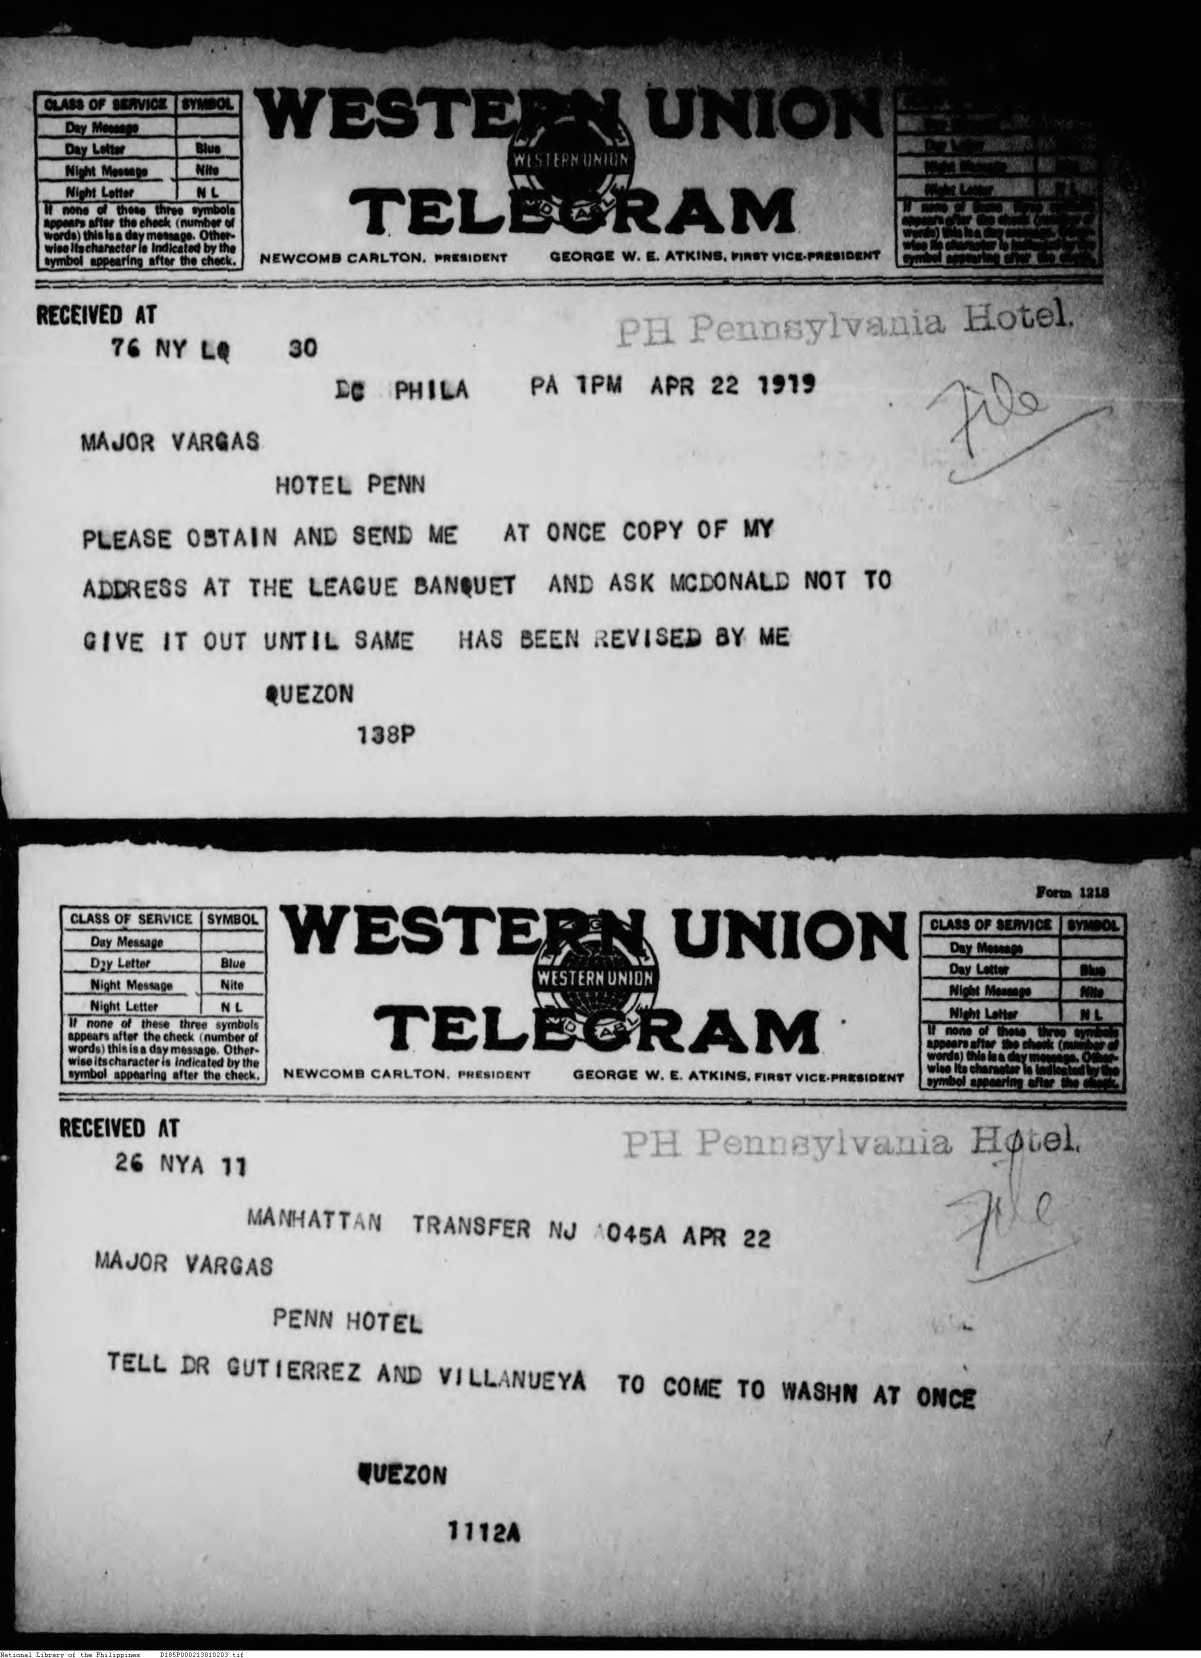 CLASS OF SERVICE SYMBOL
Day Message
Day Letter Blue
Night Message Nite
Night Letter N L
If none of these three symbols
appears after the check (number of
words) this is a day message. Other-
wise its character is indicated by the
symbol appearing after the check.
WESTERN UNION
WESTERN UNION
TELEGRAM
NEWCOMB CARLTON, PRESIDENT GEORGE W. E. ATKINS, FIRST VICE-PRESIDENT
Day Letter
Night Message
Night Letter N L
If none of these three symbols
appears after the check (number of
words) this is a day message. Other-
wise its character is indicated by the
symbol appearing after the check.
RECEIVED AT
PH Pennsylvania Hotel.
76 NY LQ 30
DC PHILA PA 1PM APR 22 1919
File
MAJOR VARGAS
HOTEL PENN
PLEASE OBTAIN AND SEND ME AT ONCE COPY OF MY
ADDRESS AT THE LEAGUE BANQUET AND ASK MCDONALD NOT TO
GIVE IT OUT UNTIL SAME HAS BEEN REVISED BY ME
QUEZON
138P
Form 1218
CLASS OF SERVICE SYMBOL
Day Message
Day Letter Blue
Night Message Nite
Night Letter N L
If none of these three symbols
appears after the check (number of
words) this is a day message. Other-
wise its character is indicated by the
symbol appearing after the check.
WESTERN UNION
WESTERN UNION
TELEGRAM
NEWCOMB CARLTON, PRESIDENT GEORGE W. E. ATKINS, FIRST VICE-PRESIDENT
CLASS OF SERVICE SYMBOL
Day Message
Day Letter Blue
Night Message Nite
Night Letter N L
If none of these three symbols
appears after the check (number of
words) this is a day message. Other-
wise its character is indicated by the
symbol appearing after the check.
RECEIVED AT
PH Pennsylvania Hotel.
26 NYA 11
MANHATTAN TRANSFER NJ 1045A APR 22
File
MAJOR VARGAS
PENN HOTEL
TELL DR GUTIERREZ AND VILLANUEYA TO COME TO WASHN AT ONCE
QUEZON
1112A
National Library of the Philippines D185P000213810203.tif